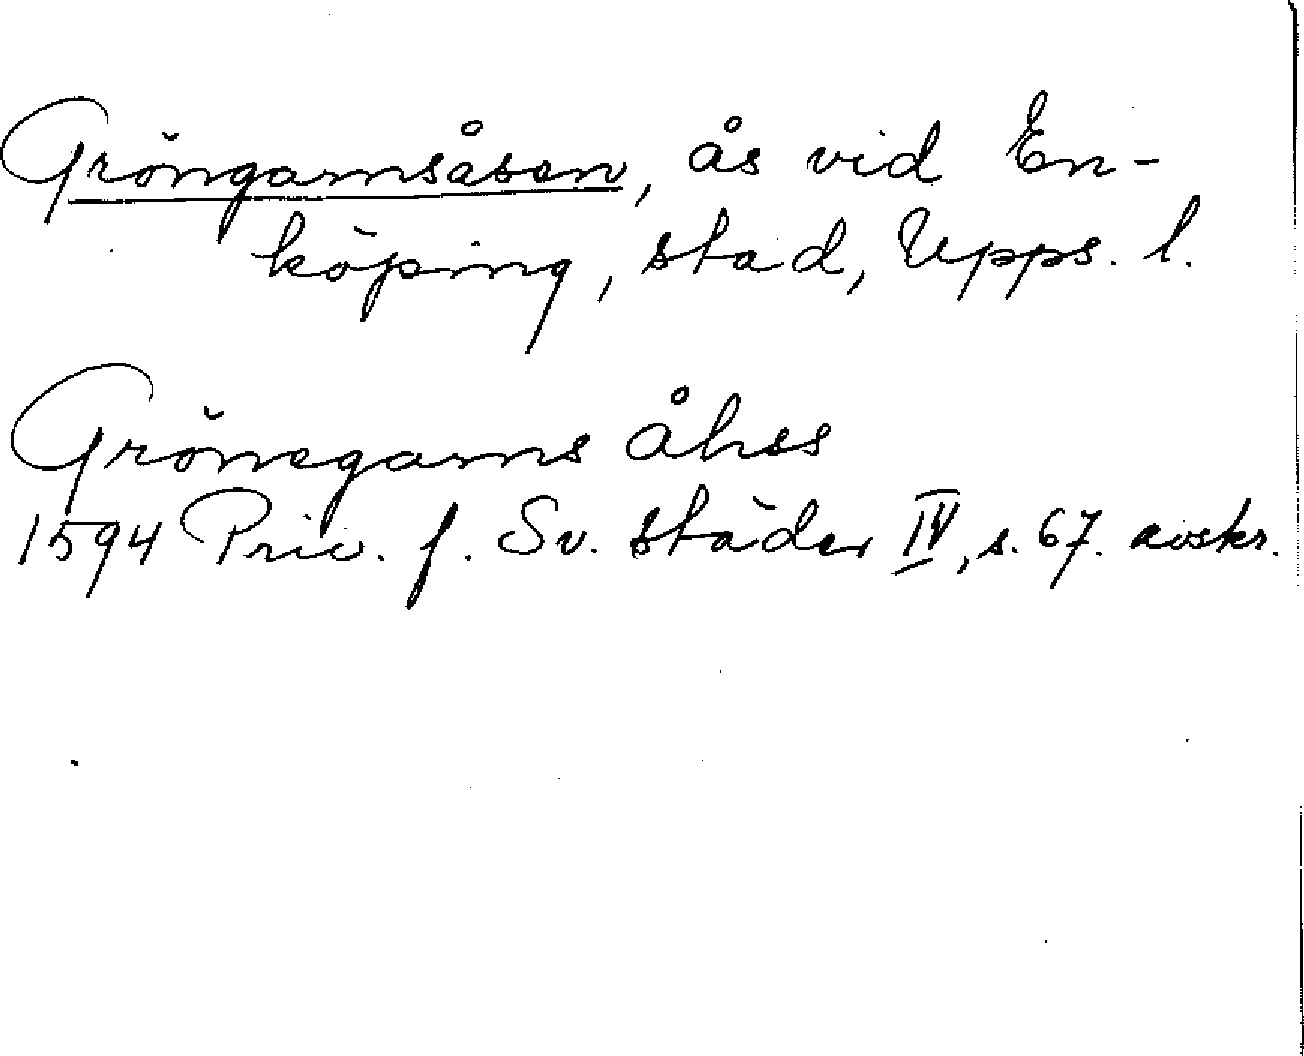 Gröngarnsåsen, ås vid En-
köping, stad, Upps. l.
Grönegarns åhss
1594 Priv. f. Sv. städer IV, s. 67. avskr.